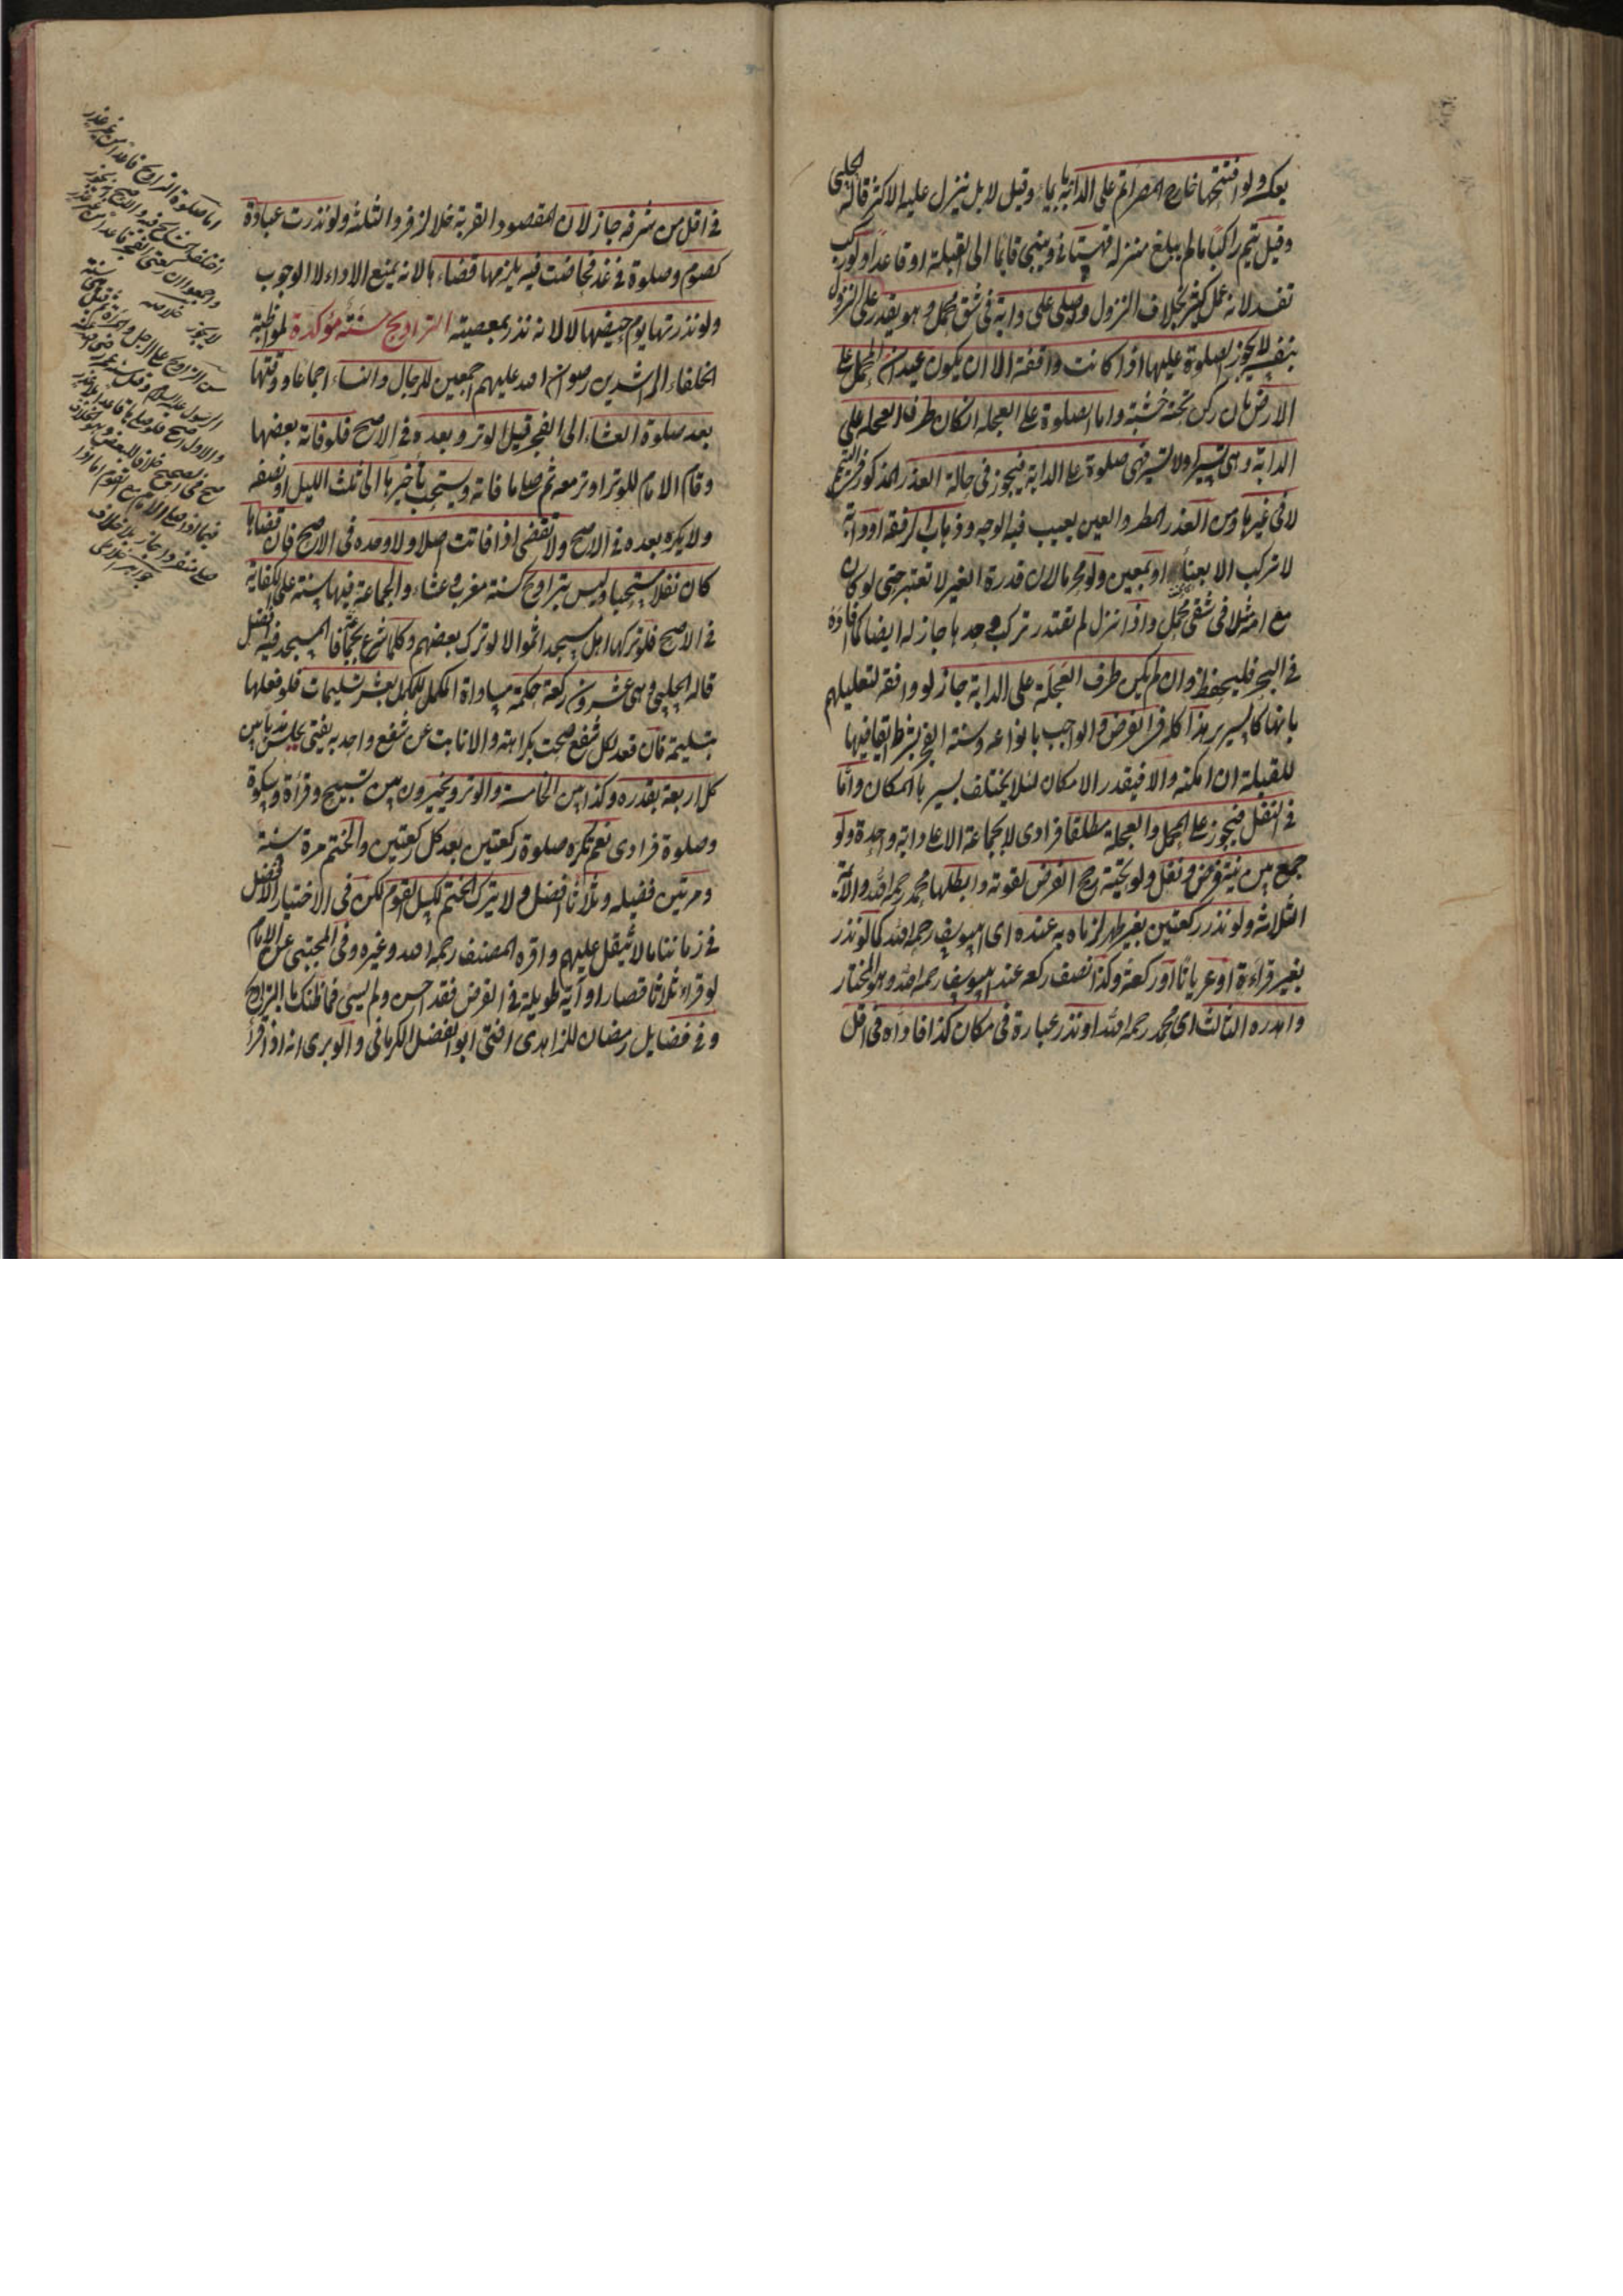 بعكه ولو افتتحها خارج المصر ثم على الدابة بايماء وقيل لا بل ينزل عليه الاكثر قاله الحلبي
وقيل يتم راكبا ما لم يبلغ منزله قهستاني ويبني قايما الى القبلة او قاعدا ولو ركب
تفسد لانه عمل كثير بخلاف النزول ولو صلى على دابة في شق محمل وهو يقدر على النزول
بنفسه لا يجوز الصلوة عليها اذا كانت واقفة الا ان يكون عيدان المحمل على
الارض بان ركز تحته خشبة واما الصلوة على العجلة ان كان طرف العجلة على
الدابة وهي تسير او لا تسير فهي صلوة على الدابة فيجوز في حالة العذر المذكور في التيمم
لا في غيرها ومن العذر المطر والطين يغيب فيه الوجه وذهاب الرفقة او دابة
لا تركب الا بعناء او بمعين ولو محرما لان قدرة الغير لا تعتبر حتى لو كان
مع امه مثلا في شقي محمل واذا نزل لم تقتدر تركب وحدها جاز له ايضا كما افاده
في البحر فليحفظ وان لم يكن طرف العجلة على الدابة جاز لو واقفة لتعليلهم
بانها كالسرير هذا كله في الفرض والواجب بانواعه وسنة الفجر بشرط ايقافها
للقبلة ان امكنه والا فبقدر الامكان لئلا يختلف بسيرها المكان واما
في النفل فيجوز على المحمل والعجلة مطلقا فرادى لا بجماعة الا على دابة واحدة ولو
جمع بين نية فرض ونفل ولو تحية رجح الفرض لقوته وابطلها محمد رحمه الله والائمة
الثلاثة ولو نذر ركعتين بغير طهر لزماه به عنده اى ابي يوسف رحمه الله كما لو نذر
بغير قراءة او عريانا او ركعة وكذا نصف ركعة عند ابي يوسف رحمه الله وهو المختار
واهدره الثالث اى محمد رحمه الله او نذر عبادة في مكان كذا فاداه في اقل
في اقل من شرفه جاز لان المقصود القربة خلافا لزفر والثلثة ولو نذرت عبادة
كصوم وصلوة في غد فحاضت فيه يلزمها قضاءها لانه يمنع الاداء لا الوجوب
ولو نذرتها يوم حيضها لا لانه نذر بمعصية التراويح سنة مؤكدة لمواظبة
الخلفاء الراشدين رضوان الله عليهم اجمعين للرجال والنساء اجماعا ووقتها
بعد صلوة العشاء الى الفجر قبل الوتر وبعده في الاصح فلو فاته بعضها
وقام الامام للوتر اوتر معه ثم صلى ما فاته ويستحب تأخيرها الى ثلث الليل او نصفه
ولا يكره بعده في الاصح ولا تقضى اذا فاتت اصلا ولا وحده في الاصح فان قضاها
كان نفلا مستحبا وليس بتراويح كسنة مغرب وعشاء والجماعة فيها سنة على الكفاية
في الاصح فلو تركها اهل مسجد اثموا الا لو ترك بعضهم وكلما شرع بجماعة فالمسجد فيه افضل
قاله الحلبي وهي عشرون ركعة حكمته مساواة المكمل للمكمل بعشر تسليمات فلو فعلها
بتسليمة فان قعد لكل شفع صحت بكراهة والا نابت عن شفع واحد به يفتى يجلس ندبا بين
كل اربعة بقدره وكذا بين الخامسة والوتر ويخيرون بين تسبيح وقرأة وسكوت
وصلوة فرادى نعم تكره صلوة ركعتين بعد كل ركعتين والختم مرة سنة
ومرتين فضيلة وثلاثا افضل ولا يترك الختم لكسل القوم لكن في الاختيار الافضل
في زماننا ما لا يثقل عليهم واقره المصنف رحمه الله وغيره وفي المجتبى عن الامام
لو قراء ثلاثا قصارا او آية طويلة في الفرض فقد احسن ولم يسئ فما ظنك بالتراويح
وفي فضايل رمضان للزاهدى افتى ابو الفضل الكرماني والوبري انه اذا قرأ
اما صلوة التراويح قاعدا من غير عذر
اختلف المشايخ فيه والاصح انه يجوز
واجمعوا ان ركعتي الفجر قاعدا من غير عذر
لا يجوز خلاصه
الرسول عليه السلام وقيل سنة عمر رضي الله عنه
والاول اصح
صح في الصحيح خلافا للبعض
صلى منفردا جاز بلا خلاف